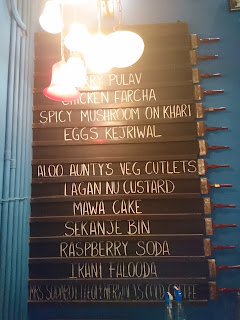 PULAV
CHICKEN FARCHA
SPICY MUSHROOM ON KHARI
EGGS KEJRIWAL
ALOO AUNTY'S VEG CUTLETS
LAGAN NU CUSTARD
MAWA CAKE
SEKANJE BIN
RASPBERRY SODA
IRANI FALOODA
MRS
COLD COFFEE